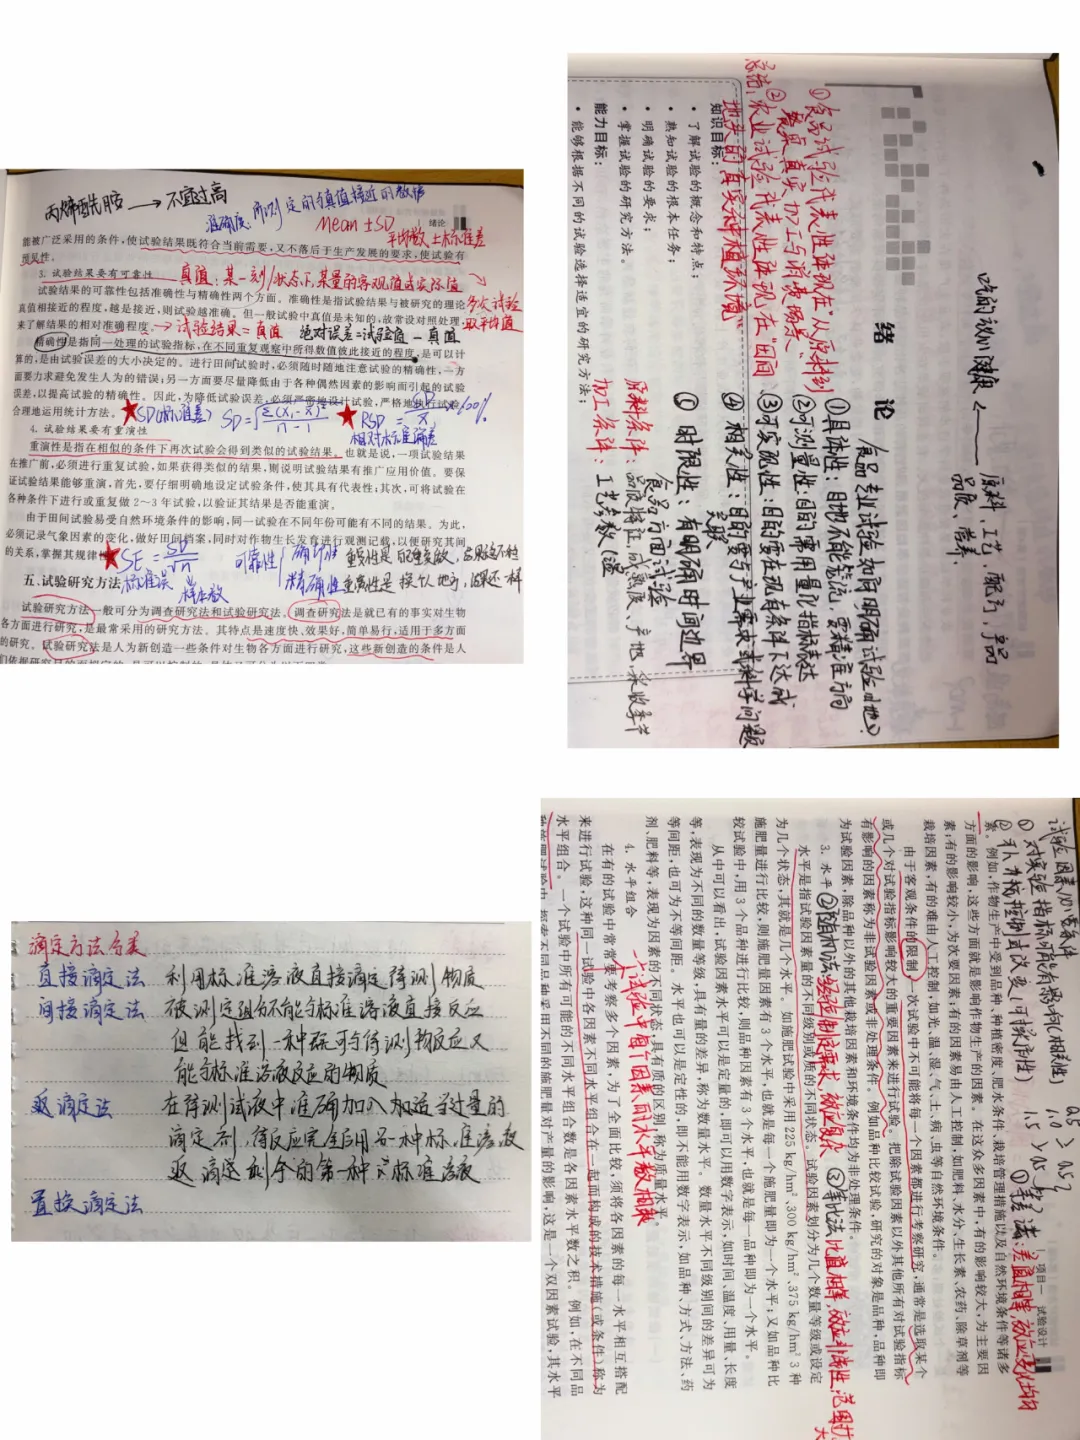 丙烯酰胺 → 不宜过高
准确度：所测定的与真值接近的数值
Mean ±SD
平均数±标准差
绪论
能被广泛采用的条件,使试验结果既符合当前需要,又不落后于生产发展的要求,使试验有
预见性。
3. 试验结果要有可靠性
真值：某一刻/状态下某量的客观值或实际值
多次试验
取平均值
试验结果的可靠性包括准确性与精确性两个方面。准确性是指试验结果与被研究的理论
真值相接近的程度,越是接近,则试验越准确。但一般试验中真值是未知的,故常设对照处理,
来了解结果的相对准确程度。
→ 试验结果=真值 绝对误差=试验值-真值
精确性是指同一处理的试验指标,在不同重复观察中所得数值彼此接近的程度,是可以计
算的,是由试验误差的大小决定的。进行田间试验时,必须随时随地注意试验的精确性,一方
面要力求避免发生人为的错误;另一方面要尽量降低由于各种偶然因素的影响而引起的试验
误差,以提高试验的精确性。因此,为降低试验误差,必须严密地设计试验,严格地执行试验,
合理地运用统计方法。
SD(标准差) SD=√Σ(Xi-X̄)²/n-1
RSD=SD/X̄×100%
相对标准偏差
4. 试验结果要有重演性
重演性是指在相似的条件下再次试验会得到类似的试验结果。也就是说,一项试验结果
在推广前,必须进行重复试验,如果获得类似的结果,则说明试验结果有推广应用价值。要保
证试验结果能够重演,首先,要仔细明确地设定试验条件,使其具有代表性;其次,可将试验在
各种条件下进行或重复做 2～3 年试验,以验证其结果是否能重演。
由于田间试验易受自然环境条件的影响,同一试验在不同年份可能有不同的结果。为此,
必须记录气象因素的变化,做好田间档案,同时对作物生长发育进行观测记载,以便研究其间
的关系,掌握其规律性。
SE=SD/√n
标准误 样本数
可靠性 准确性
精确性
五、试验研究方法
试验研究方法一般可分为调查研究法和试验研究法。调查研究法是就已有的事实对生物
各方面进行研究,是最常采用的研究方法。其特点是速度快、效果好,简单易行,适用于多方面
的研究。试验研究法是人为新创造一些条件对生物各方面进行研究,这些新创造的条件是人
吃的健康 ← 原料、工艺、配方、产品
品质、营养
绪 论
食品专业试验如何明确试验目的?
①具体性:目地不能笼统,要精准方向
②可测量性:目的需用量化指标表达
③可实现性:目的要在现有条件下达成
④相关性:目的要与产业需求或科学问题
关联
① 时限性:有明确时间边界
总结:
①食品试验代表性体现在"从原料到
餐桌"真实加工与消费场景
②农业试验代表性体现在"田间
地头"的真实种植环境
知识目标:
• 了解试验的概念和特点;
• 熟知试验的根本任务;
• 明确试验的要求;
• 掌握试验的研究方法。
能力目标:
• 能够根据不同的试验选择适宜的研究方法;
食品方面试验
原料条件:品质特征,成熟度、产地,采收季节
加工条件:工艺参数(温
滴定方法分类
直接滴定法 利用标准溶液直接滴定待测物质
间接滴定法 被测定组分不能与标准溶液直接反应
但能找到一种既可与待测物反应又
能与标准溶液反应的物质
返滴定法 在待测试液中准确加入加适当过量的
滴定剂,待反应完全后用另一种标准溶液
返滴定剩余的第一种标准溶液
置换滴定法
试验因素必需条件
①对实验指标可能有影响(相关性)
②
项目一 试验设计
0.5
1.0 > 0.5
1.5 > 0.5
①等差法:差值相等,效应变化均匀
素。例如,作物生产中受到品种、种植密度、肥水条件、栽培管理措施以及自然环境条件等诸多
方面的影响,这些方面就是影响作物生产的因素。在这众多因素中,有的影响较大,为主要因
素;有的影响较小,为次要因素;有的因素易由人工控制,如肥料、水分、生长素、农药、除草剂等
栽培因素,有的难由人工控制,如光、温、湿、气、土、病、虫等自然环境条件。
由于客观条件的限制,一次试验中不可能将每一个因素都进行考察研究,通常是选取某个
或几个对试验指标影响较大的重要因素来进行试验。把除试验因素以外其他所有对试验指标
有影响的因素称为非试验因素或非处理条件。例如品种比较试验,研究的对象是品种,品种即
为试验因素,除品种以外的其他栽培因素和环境条件均为非处理条件。
3. 水平
②随机法:
③等比法:比值相等,效应非线性,范围大
水平是指试验因素量的不同级别或质的不同状态。试验因素划分为几个数量等级或设定
为几个状态,其就是几个水平。如施肥试验中采用 225 kg/hm²、300 kg/hm²、375 kg/hm² 3 种
施肥量进行比较,则施肥量因素有 3 个水平,也就是每一个施肥量即为一个水平;又如品种比
较试验中,用 3 个品种进行比较,则品种因素有 3 个水平,也就是每一品种即为一个水平。
从中可以看出,试验因素水平可以是定量的,即可以用数字表示,如时间、温度、用量、长度
等,表现为不同的数量等级,具有量的差异,称为数量水平。数量水平不同级别间的差异可为
等间距,也可为不等间距。水平也可以是定性的,即不能用数字表示,如品种、方式、方法、药
剂、肥料等,表现为因素的不同状态,具有质的区别,称为质量水平。
4. 水平组合
→试验中每个因素的水平数相乘
在有的试验中常常要考察多个因素,为了全面比较,须将各因素的每一水平相互搭配
来进行试验,这种同一试验中各因素不同水平组合在一起而构成的技术措施(或条件)称为
水平组合。一个试验中所有可能的不同水平组合数是各因素水平数之积。例如,在不同品
种采用不同的施肥量对产量的影响,这是一个双因素试验,其水平